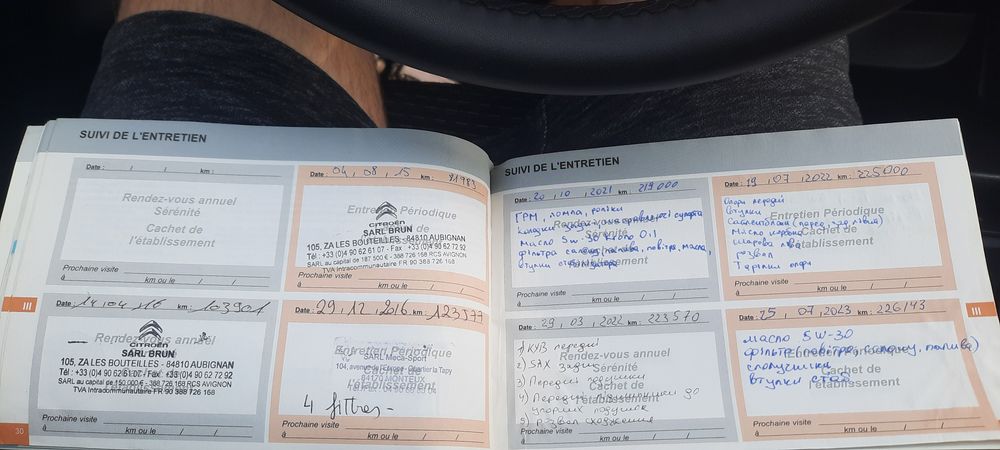 SUIVI DE L'ENTRETIEN
Date : / / km :
Rendez-vous annuel
Sérénité
Cachet de
l'établissement
Prochaine visite
à km ou le / /
Date : 04, 08, 15 km : 91983
Entretien Périodique
CITROËN
SARL BRUN
105, ZA LES BOUTEILLES - 84810 AUBIGNAN
Tél : +33 (0)4 90 62 61 07 - Fax : +33 (0)4 90 62 72 92
SARL au capital de 187 500 € - 388 726 168 RCS AVIGNON
TVA Intracommunautaire FR 90 388 726 168
Prochaine visite
à km ou le / /
III
Date : 14, 04, 16 km : 103901
Rendez-vous annuel
SARL BRUN
105, ZA LES BOUTEILLES - 84810 AUBIGNAN
Tél : +33 (0)4 90 62 61 07 - Fax : +33 (0)4 90 62 72 92
SARL au capital de 150 000 € - 388 726 168 RCS AVIGNON
TVA Intracommunautaire FR 90 388 726 168
Prochaine visite
à km ou le / /
Date : 29, 12, 2016 km : 123577
Entretien Périodique
SARL Meca-Sport
84170 MONTEUX
l'établissement
4 filtres -
Prochaine visite
à km ou le / /
30
SUIVI DE L'ENTRETIEN
Date : 20, 10, 2021 km : 219000
ГРМ, помпа, ролики
колодки задні
масло 5w-30
фільтра салону, палива, повітря, масла,
втулки
Prochaine visite
à km ou le / /
Date : 19, 07, 2022 km : 225000
Опори передні
Втулки
Entretien Périodique
Cachet de
Шарова ліва
l'établissement
розвал
Тарілки опори
Prochaine visite
à km ou le / /
Date : 29, 03, 2022 km : 223570
1) КУВ передні
Rendez-vous annuel
2) SAX задні
Sérénité
3) Передні подушки
Cachet de
4) Передні підшипники
l'établissement
упорних подушок
5) Розвал сходження
Prochaine visite
à km ou le / /
Date : 25, 07, 2023 km : 226143
масло 5W-30
фільтра (повітря, салону, палива)
Entretien Périodique
Cachet de
втулки стаб
l'établissement
Prochaine visite
à km ou le / /
III